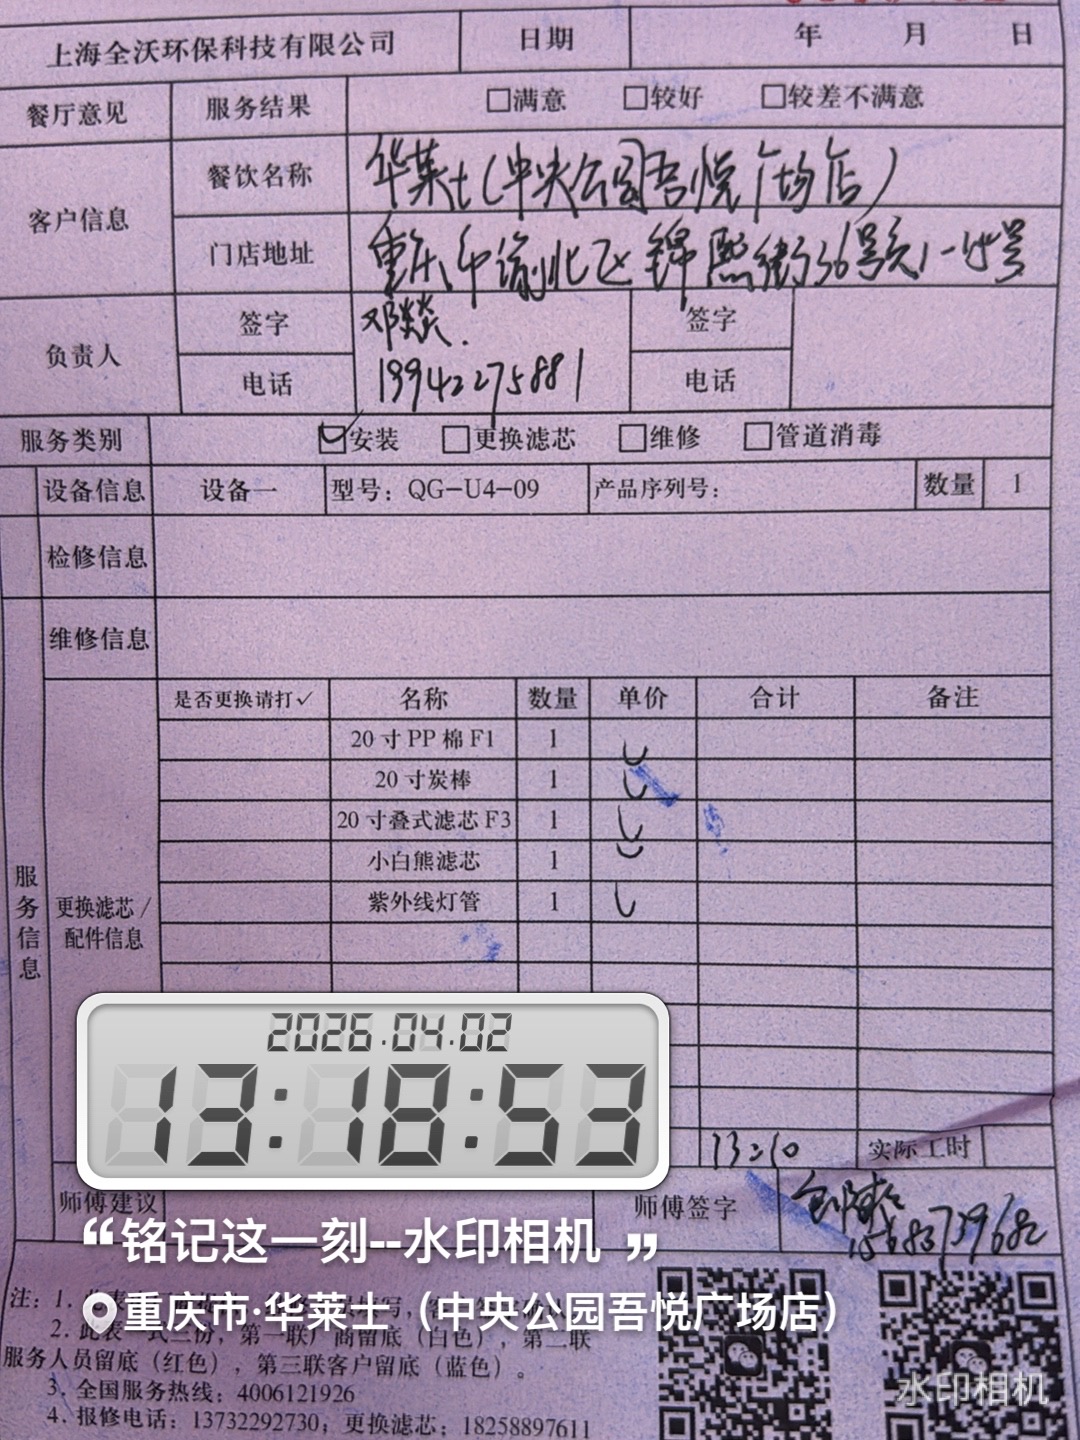 上海全沃环保科技有限公司 日期 年 月 日
餐厅意见 服务结果 □满意 □较好 □较差不满意
客户信息 餐饮名称 华莱士(中央公园吾悦广场店)
门店地址 重庆市渝北区锦熙街36号负1-号
负责人 签字 邓燚. 签字
电话 19942275881 电话
服务类别 ☑安装 □更换滤芯 □维修 □管道消毒
设备信息 设备一 型号：QG-U4-09 产品序列号： 数量 1
检修信息
维修信息
服务信息
更换滤芯/配件信息
是否更换请打✓ 名称 数量 单价 合计 备注
20寸PP棉F1 1 ✓
20寸炭棒 1 ✓
20寸叠式滤芯F3 1 ✓
小白熊滤芯 1 ✓
紫外线灯管 1 ✓
2026.04.02
13:18:53
13:10 实际工时
师傅建议 师傅签字
“铭记这一刻--水印相机”
重庆市·华莱士（中央公园吾悦广场店）
注：1.
2. 此表一式三份，第一联厂商留底（白色），第二联
服务人员留底（红色），第三联客户留底（蓝色）。
3. 全国服务热线：4006121926
4. 报修电话：13732292730；更换滤芯：18258897611
水印相机